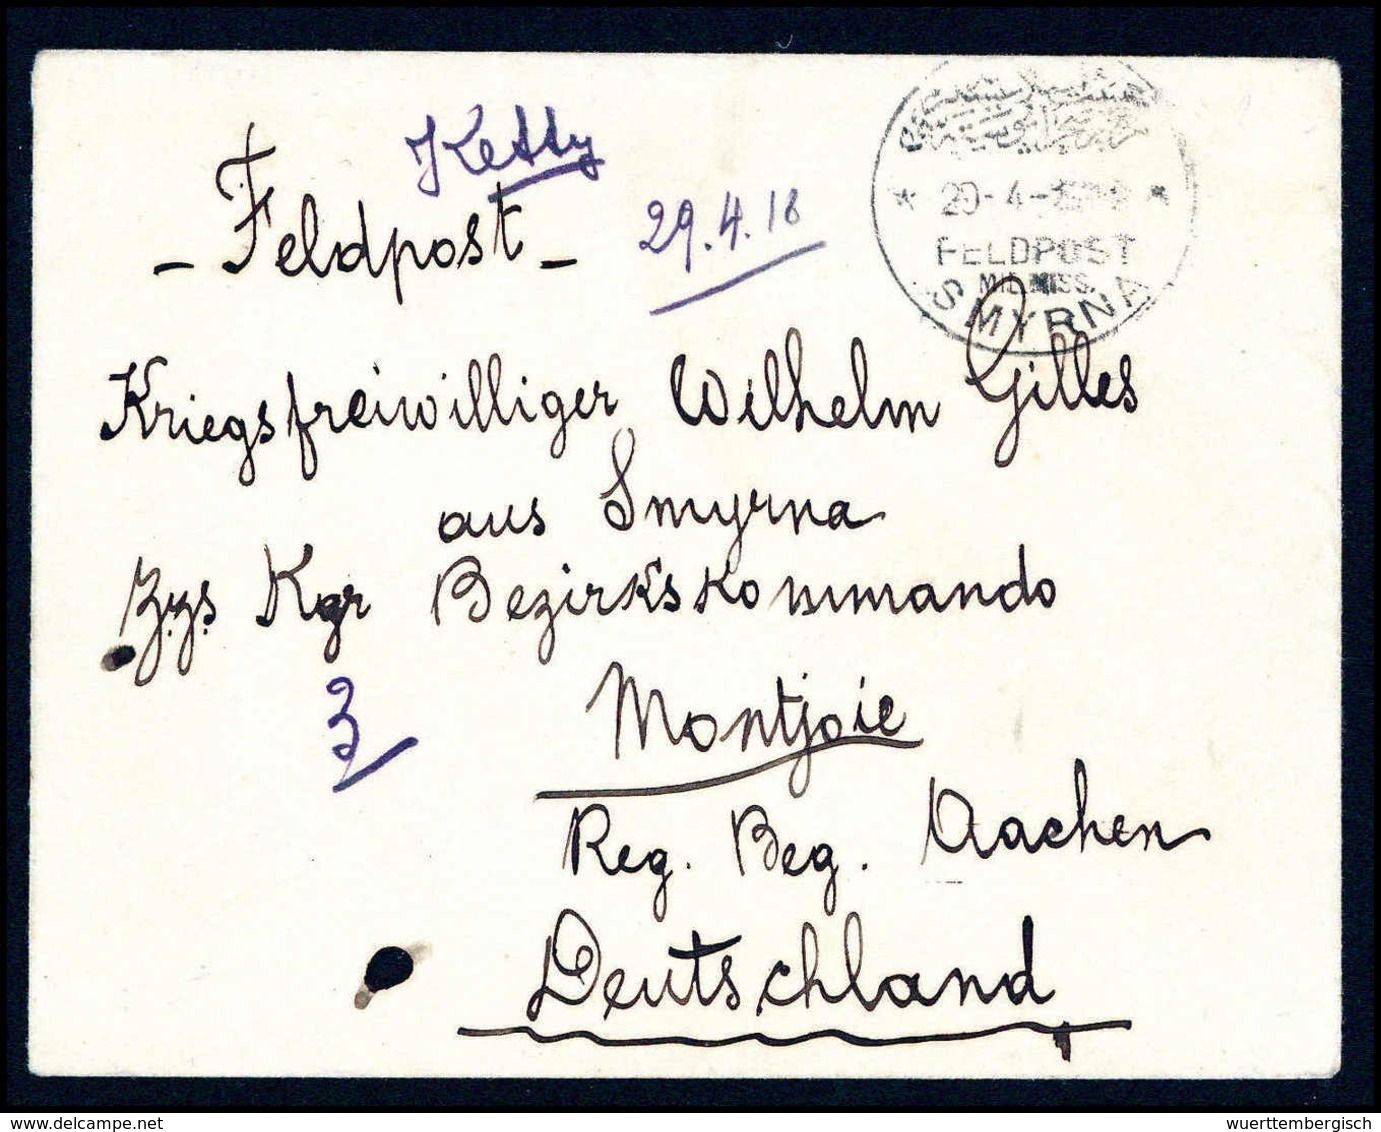 Ketty
- Feldpost -
29.4.18
20-4-
FELDPOST
MIL.MISS.
SMYRNA
Kriegsfreiwilliger Wilhelm Gilles
aus Smyrna
Kgr Bezirkskommando
3
Montjoie
Reg. Beg. Aachen
Deutschland
delcampe.net
wuerttembergisch